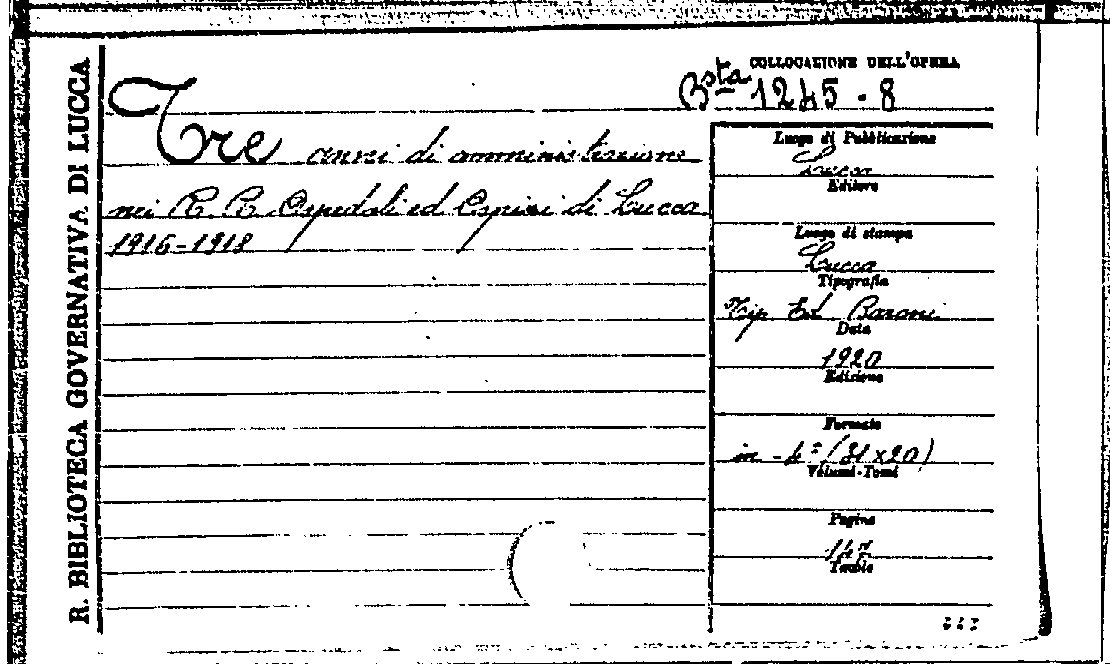 R. BIBLIOTECA GOVERNATIVA DI LUCCA
COLLOCAZIONE DELL'OPERA
Bsta 1245 - 8
Tre anni di amministrazione
nei R. R. Ospedali ed Ospizi di Lucca
1916-1918
Luogo di Pubblicazione
Lucca
Editore
Luogo di stampa
Lucca
Tipografia
Tip. Ed. Baroni
Data
1920
Edizione
Formato
in - 4º (31 x 20)
Volumi-Tomi
Pagine
Tavole